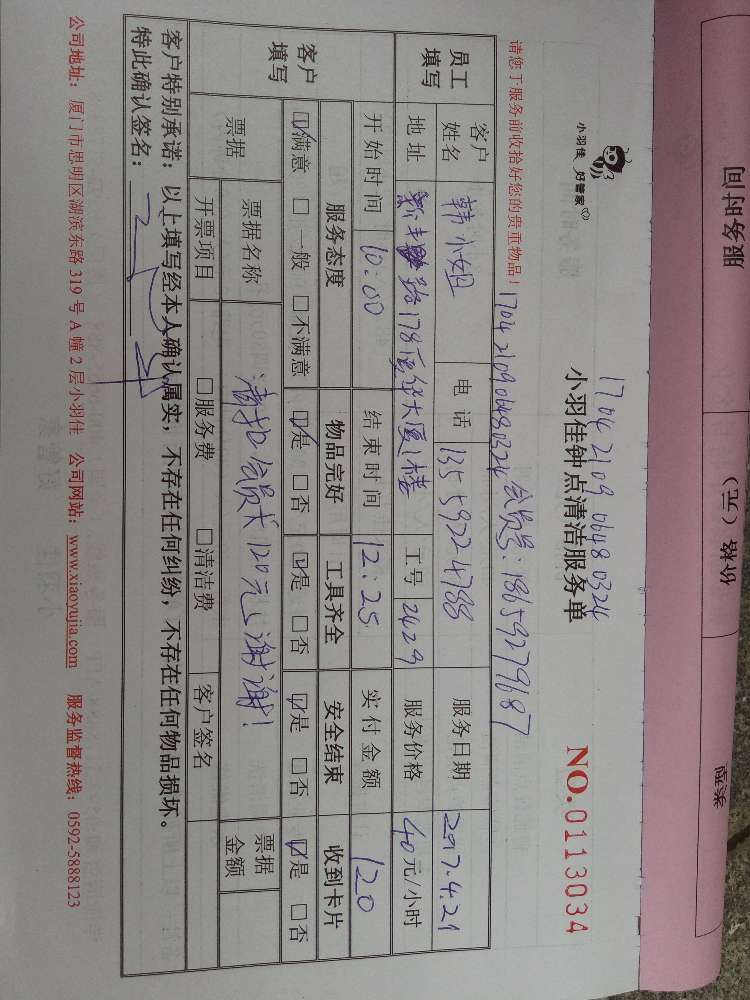 服务时间
价格（元）
小羽佳 好管家
17042109 0648 0324
小羽佳钟点清洁服务单
NO.0113034
请您于服务前收拾好您的贵重物品！
17042109 0648 0324 会员号：18659279687
员工填写
客户姓名 韩小姐 电话 13559224788 服务日期 2017.4.21
地址 路178 大厦1楼 工号 2429 服务价格 40元/小时
开始时间 10:00 结束时间 12:25 实付金额 120
客户填写
服务态度 物品完好 工具齐全 安全结束 收到卡片
☑满意 □一般 □不满意 ☑是 □否 ☑是 □否 ☑是 □否 ☑是 □否
票据 票据名称 请扣会员卡120元，谢谢！ 票据金额
开票项目 □服务费 □清洁费 客户签名
客户特别承诺：以上填写经本人确认属实，不存在任何纠纷，不存在任何物品损坏。
特此确认签名：
公司地址：厦门市思明区湖滨东路 319 号 A 幢 2 层小羽佳 公司网站：www.xiaoyujia.com 服务监督热线：0592-5888123